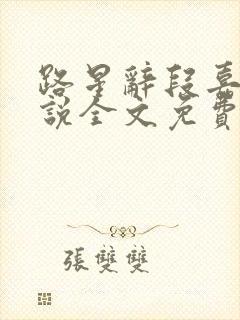 路星辭段嘉
說全文免費
張雙雙